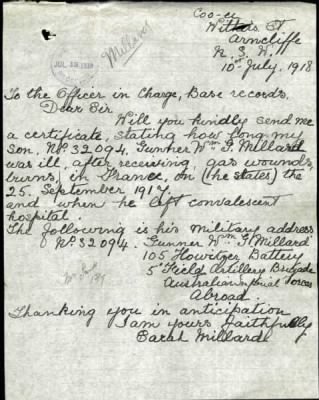 Coo-ee
St
Arncliffe
N. S. W.
10th July, 1918
Millard
JUL 1918
To the Officer in Charge, Base records.
Dear Sir
Will you kindly send me
a certificate, stating how long my
son, No 32094, Gunner Wm G. Millard
was ill, after receiving, gas wounds,
burns, in France, on (he states) the
25. September 1917.
and when he left convalescent
hospital.
The following is his military address
No 32094. Gunner Wm G Millard
105 Howitzer Battery
5th Field Artillery Brigade
Australian Imperial Forces
Abroad.
Thanking you in anticipation
I am yours faithfully
Sarah Millard